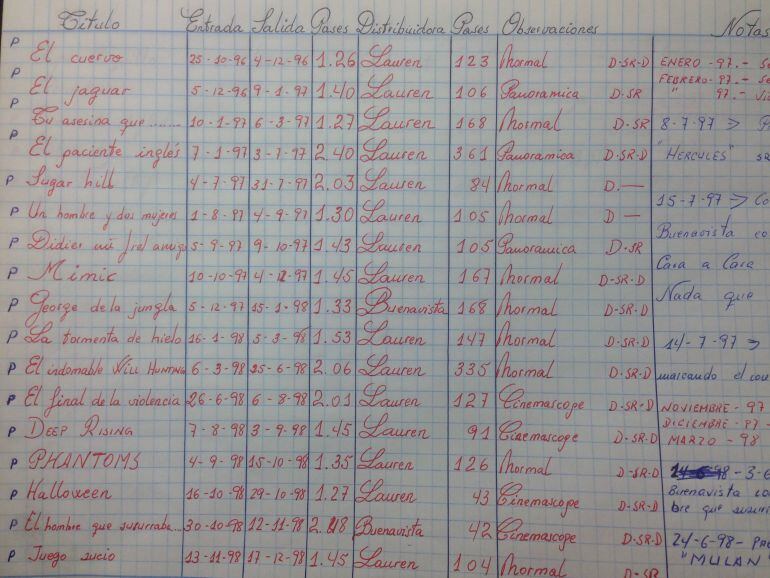 Título Entrada Salida Pases Distribuidora Pases Observaciones Notas
P El cuervo 25-10-96 4-12-96 1.26 Lauren 123 Normal D-SR-D ENERO-97.-
P El jaguar 5-12-96 9-1-97 1.40 Lauren 106 Panoramica D-SR FEBRERO-97.-
" 97.-
P Tu asesina que ........ 10-1-97 6-3-97 1.27 Lauren 168 Normal D-SR 8-7-97 =>
P El paciente inglés 7-1-97 3-7-97 2.40 Lauren 361 Panoramica D-SR-D "HERCULES"
P Sugar hill 4-7-97 31-7-97 2.03 Lauren 84 Normal D.—
15-7-97 =>
P Un hombre y dos mujeres 1-8-97 4-9-97 1.30 Lauren 105 Normal D —
Buenavista
P Didier mi fiel amigo 5-9-97 9-10-97 1.43 Lauren 105 Panoramica D-SR
Cara a Cara
P Mimic 10-10-97 4-12-97 1.45 Lauren 167 Normal D-SR-D
Nada que
P George de la jungla 5-12-97 15-1-98 1.33 Buenavista 168 Normal D-SR-D
P La tormenta de hielo 16-1-98 5-3-98 1.53 Lauren 147 Normal D-SR-D 14-7-97 =>
P El indomable WILL HUNTING 6-3-98 25-6-98 2.06 Lauren 335 Normal D-SR-D marcando el
P El final de la violencia 26-6-98 6-8-98 2.01 Lauren 127 Cinemascope D-SR-D NOVIEMBRE-97
DICIEMBRE-97-
P DEEP RISING 7-8-98 3-9-98 1.45 Lauren 91 Cinemascope D-SR-D MARZO-98
P PHANTOMS 4-9-98 15-10-98 1.35 Lauren 126 Normal D-SR-D
P Halloween 16-10-98 29-10-98 1.27 Lauren 43 Cinemascope D-SR-D Buenavista
bre que
P El hombre que susurraba... 30-10-98 12-11-98 Buenavista 42 Cinemascope D-SR-D 24-6-98-
P Juego sucio 13-11-98 17-12-98 1.45 Lauren 104 Normal D-SR "MULAN"